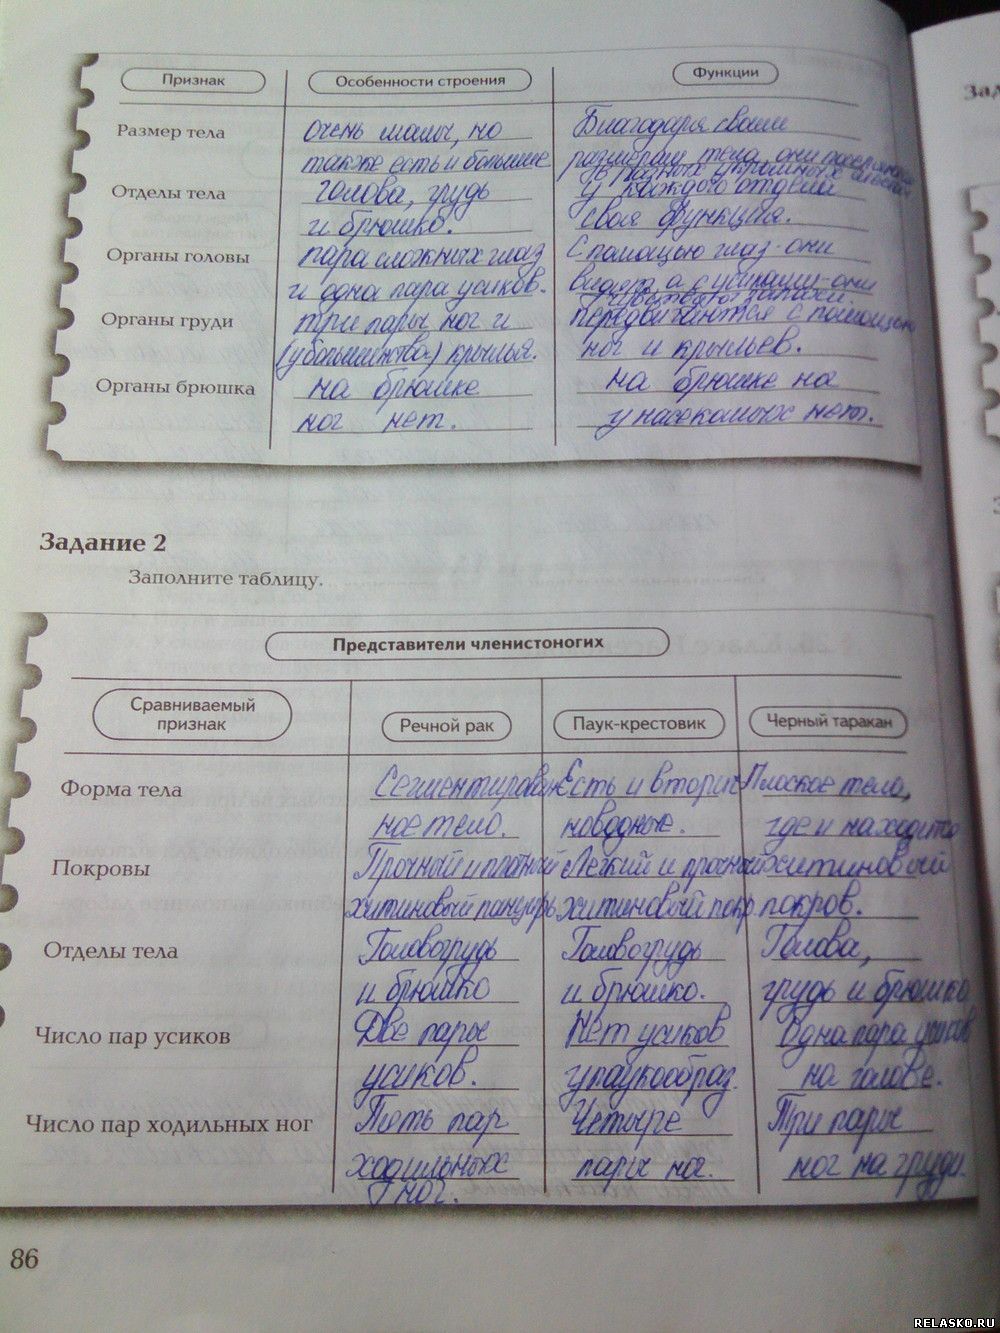 Признак Особенности строения Функции
Размер тела очень малы, но Благодаря своим
также есть и большие размерам тела, они
в разных укромных
Отделы тела голова, грудь у каждого отдела
и брюшко. своя функция.
Органы головы пара сложных глаз С помощью глаз-они
и одна пара усиков. видят, а с усиками-они
чувствуют запахи.
Органы груди три пары ног и передвигаются с помощью
(у большинства) крылья. ног и крыльев.
Органы брюшка на брюшке на брюшке на
ног нет. у насекомых нет.
Задание 2
Заполните таблицу.
Представители членистоногих
Сравниваемый
признак Речной рак Паук-крестовик Черный таракан
Форма тела Сегментирован Есть и вторич Плоское тело,
ное тело. новодные. где и находится
Покровы Прочный и плотный Легкий и прочный хитиновый
хитиновый панцирь хитиновый покр покров.
Отделы тела Головогрудь Головогрудь Голова,
и брюшко и брюшко. грудь и брюшко
Число пар усиков Две пары Нет усиков Одна пара усиков
усиков. у паукообраз. на голове.
Число пар ходильных ног Пять пар Четыре Три пары
ходильных пары ног. ног на груди.
ног.
86
RELASKO.RU